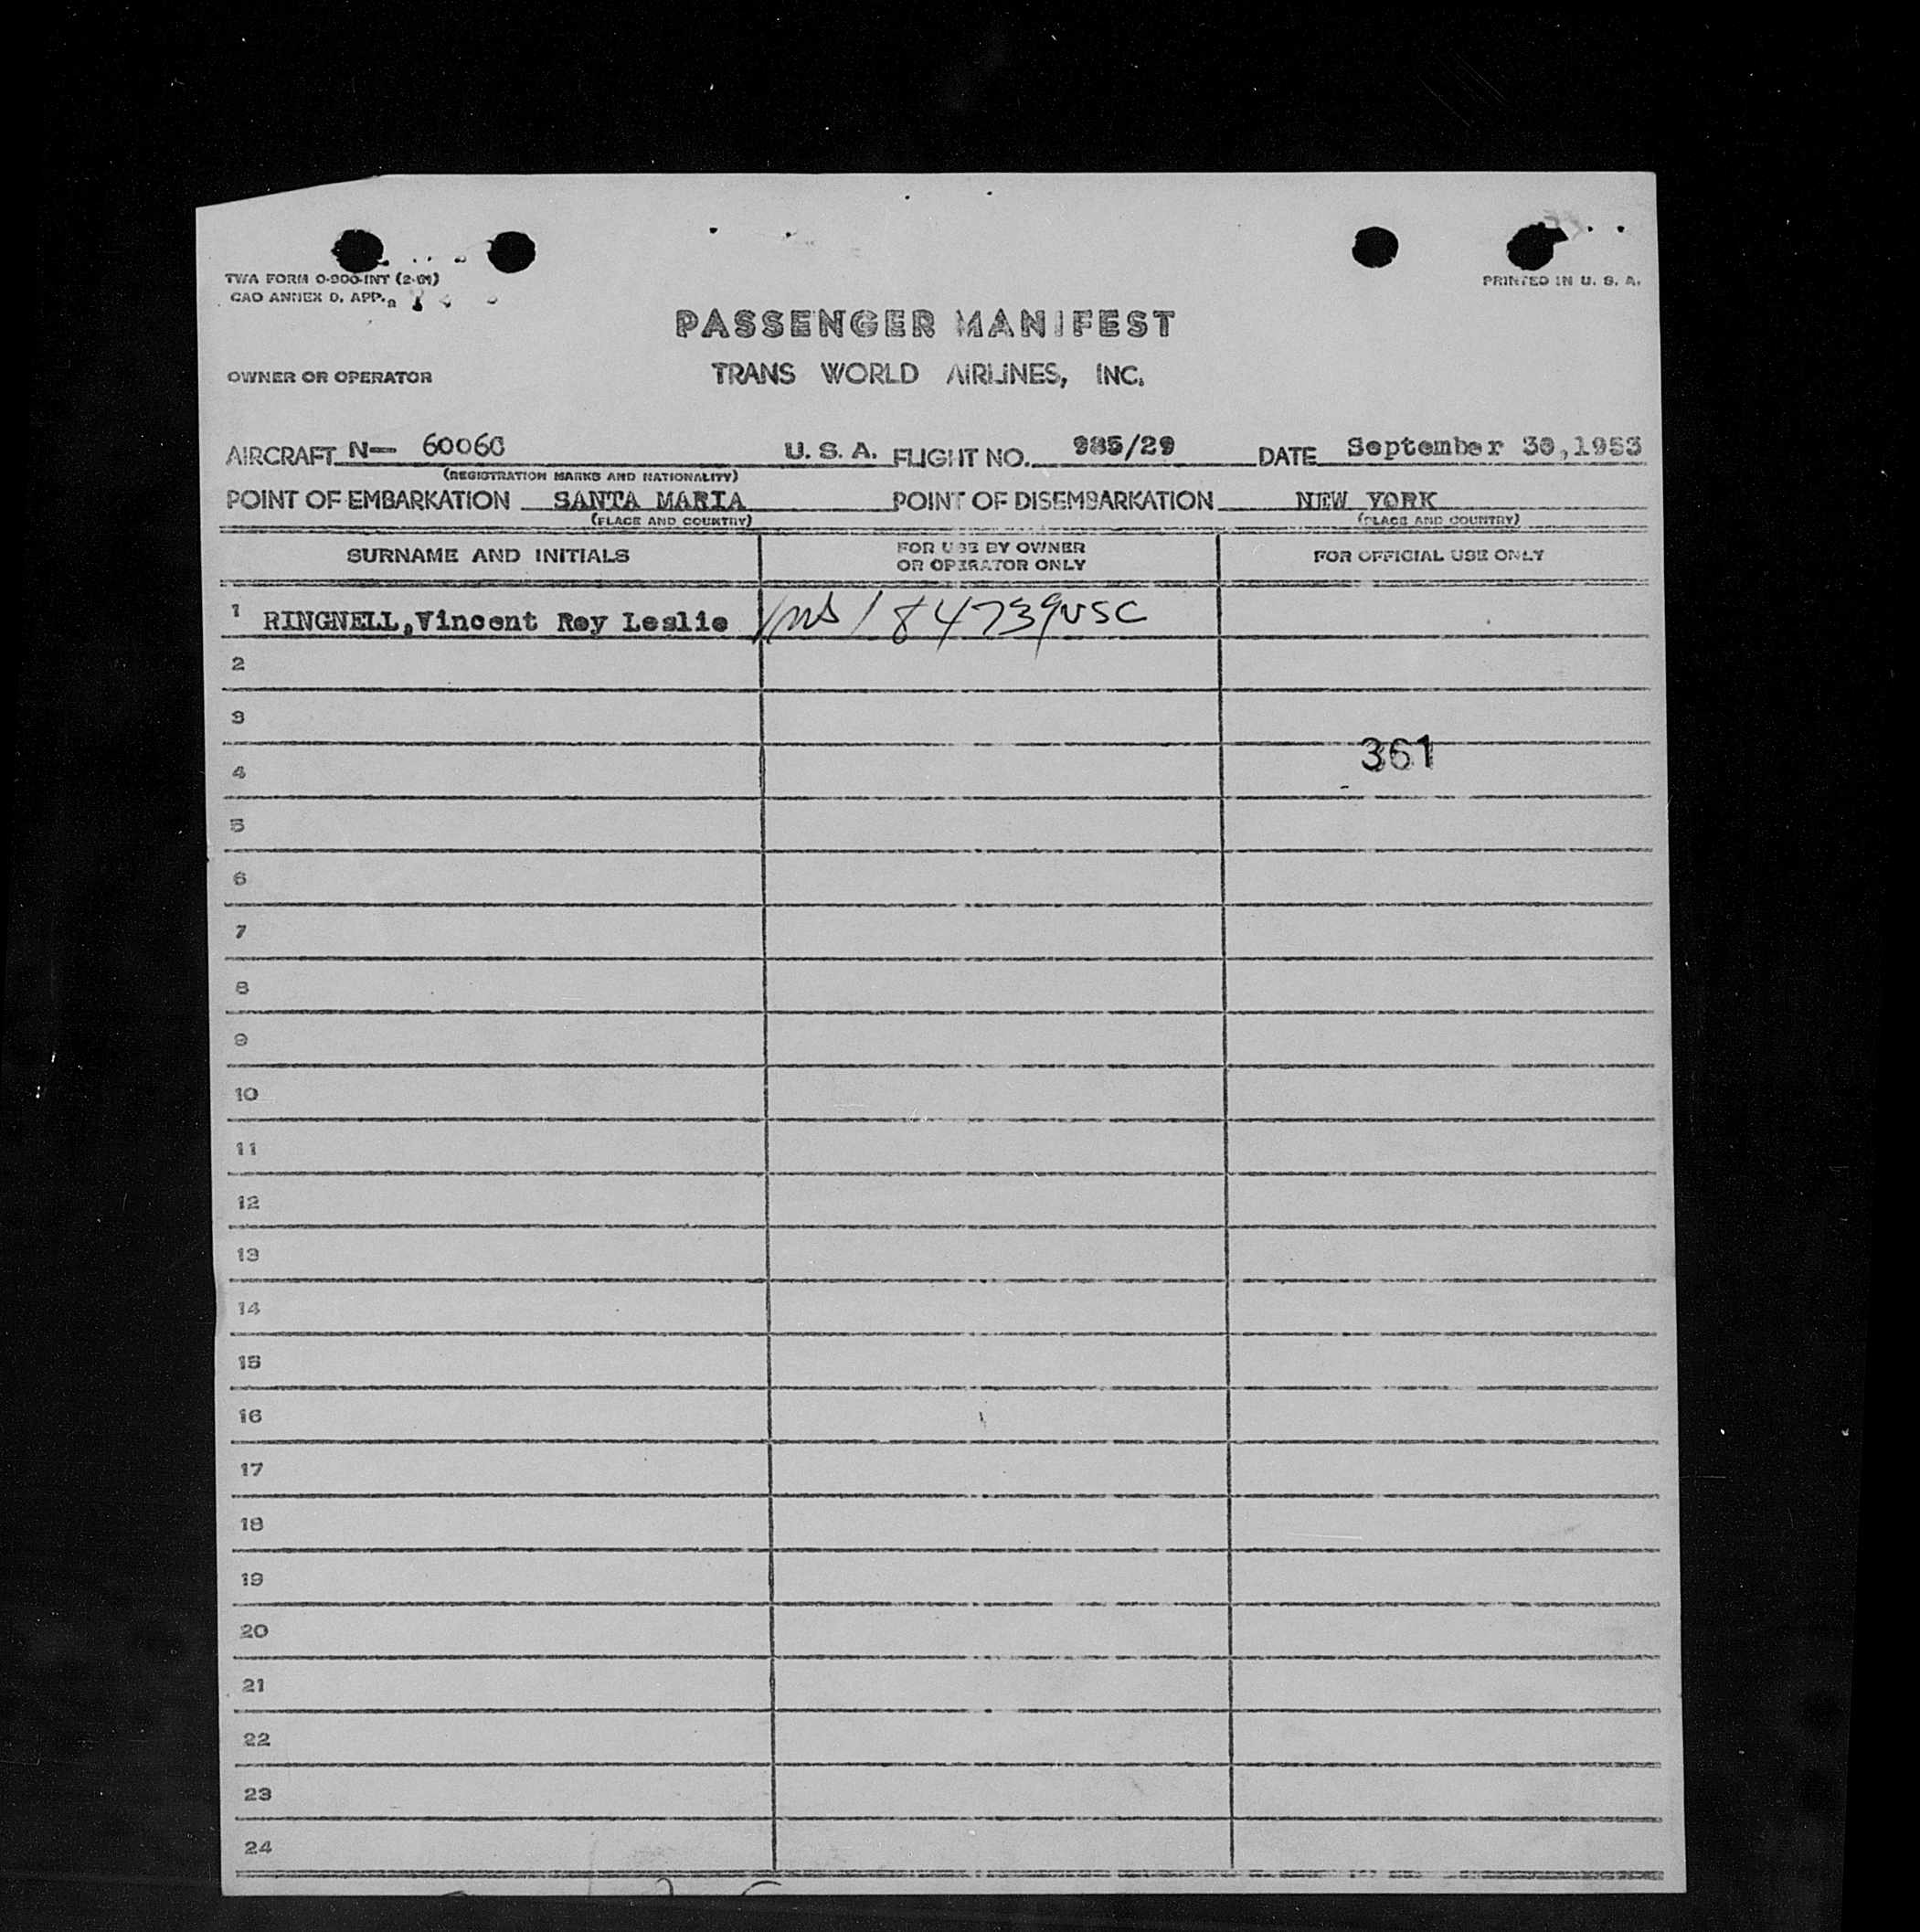 TWA FORM O-900-INT (2-51)
CAO ANNEX D. APP.
PRINTED IN U. S. A.
PASSENGER MANIFEST
OWNER OR OPERATOR
TRANS WORLD AIRLINES, INC.
AIRCRAFT N— 6006C U. S. A. FLIGHT NO. 985/29 DATE September 30,1953
(REGISTRATION MARKS AND NATIONALITY)
POINT OF EMBARKATION SANTA MARIA POINT OF DISEMBARKATION NEW YORK
(PLACE AND COUNTRY) (PLACE AND COUNTRY)
SURNAME AND INITIALS FOR USE BY OWNER OR OPERATOR ONLY FOR OFFICIAL USE ONLY
1 RINGNELL,Vincent Roy Leslie 184739 USC
2
3
361
4
5
6
7
8
9
10
11
12
13
14
15
16
17
18
19
20
21
22
23
24